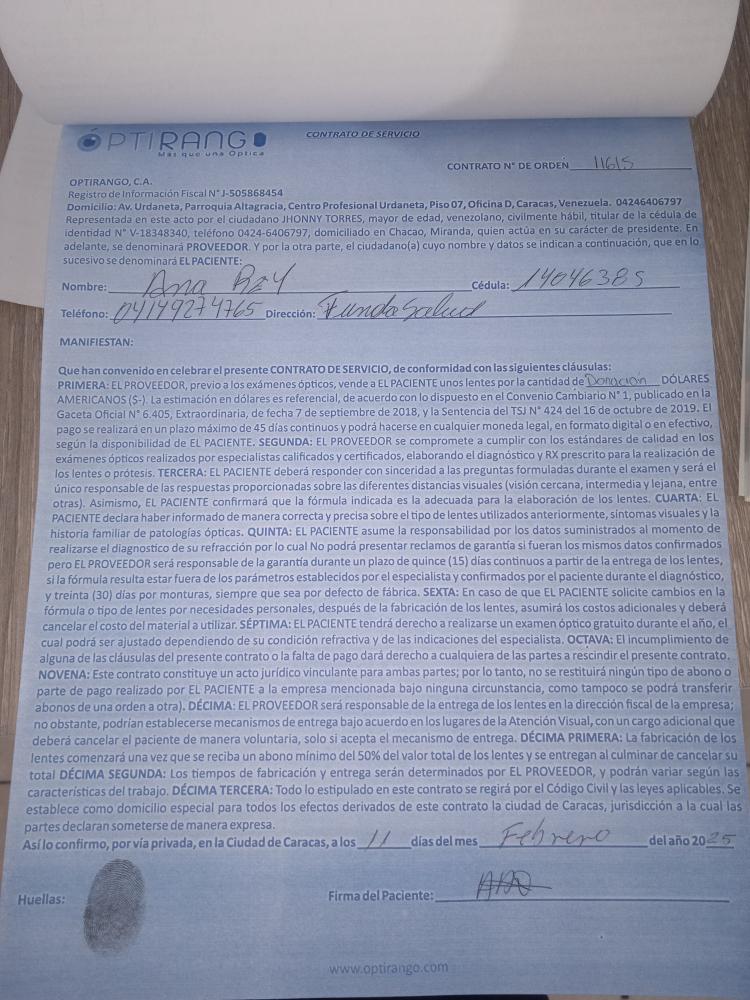 ÓPTIRANGO
Más que una Óptica
CONTRATO DE SERVICIO
CONTRATO N° DE ORDEN 11615
OPTIRANGO, C.A.
Registro de Información Fiscal N° J-505868454
Domicilio: Av. Urdaneta, Parroquia Altagracia, Centro Profesional Urdaneta, Piso 07, Oficina D, Caracas, Venezuela. 04246406797
Representada en este acto por el ciudadano JHONNY TORRES, mayor de edad, venezolano, civilmente hábil, titular de la cédula de
identidad N° V-18348340, teléfono 0424-6406797, domiciliado en Chacao, Miranda, quien actúa en su carácter de presidente. En
adelante, se denominará PROVEEDOR. Y por la otra parte, el ciudadano(a) cuyo nombre y datos se indican a continuación, que en lo
sucesivo se denominará EL PACIENTE:
Nombre: Ana Rey Cédula: 14046385
Teléfono: 04149274765 Dirección: Funda Salud
MANIFIESTAN:
Que han convenido en celebrar el presente CONTRATO DE SERVICIO, de conformidad con las siguientes cláusulas:
PRIMERA: EL PROVEEDOR, previo a los exámenes ópticos, vende a EL PACIENTE unos lentes por la cantidad de Donación DÓLARES
AMERICANOS ($-). La estimación en dólares es referencial, de acuerdo con lo dispuesto en el Convenio Cambiario N° 1, publicado en la
Gaceta Oficial N° 6.405, Extraordinaria, de fecha 7 de septiembre de 2018, y la Sentencia del TSJ N° 424 del 16 de octubre de 2019. El
pago se realizará en un plazo máximo de 45 días continuos y podrá hacerse en cualquier moneda legal, en formato digital o en efectivo,
según la disponibilidad de EL PACIENTE. SEGUNDA: EL PROVEEDOR se compromete a cumplir con los estándares de calidad en los
exámenes ópticos realizados por especialistas calificados y certificados, elaborando el diagnóstico y RX prescrito para la realización de
los lentes o prótesis. TERCERA: EL PACIENTE deberá responder con sinceridad a las preguntas formuladas durante el examen y será el
único responsable de las respuestas proporcionadas sobre las diferentes distancias visuales (visión cercana, intermedia y lejana, entre
otras). Asimismo, EL PACIENTE confirmará que la fórmula indicada es la adecuada para la elaboración de los lentes. CUARTA: EL
PACIENTE declara haber informado de manera correcta y precisa sobre el tipo de lentes utilizados anteriormente, síntomas visuales y la
historia familiar de patologías ópticas. QUINTA: EL PACIENTE asume la responsabilidad por los datos suministrados al momento de
realizarse el diagnostico de su refracción por lo cual No podrá presentar reclamos de garantía si fueran los mismos datos confirmados
pero EL PROVEEDOR será responsable de la garantía durante un plazo de quince (15) días continuos a partir de la entrega de los lentes,
si la fórmula resulta estar fuera de los parámetros establecidos por el especialista y confirmados por el paciente durante el diagnóstico,
y treinta (30) días por monturas, siempre que sea por defecto de fábrica. SEXTA: En caso de que EL PACIENTE solicite cambios en la
fórmula o tipo de lentes por necesidades personales, después de la fabricación de los lentes, asumirá los costos adicionales y deberá
cancelar el costo del material a utilizar. SÉPTIMA: EL PACIENTE tendrá derecho a realizarse un examen óptico gratuito durante el año, el
cual podrá ser ajustado dependiendo de su condición refractiva y de las indicaciones del especialista. OCTAVA: El incumplimiento de
alguna de las cláusulas del presente contrato o la falta de pago dará derecho a cualquiera de las partes a rescindir el presente contrato.
NOVENA: Este contrato constituye un acto jurídico vinculante para ambas partes; por lo tanto, no se restituirá ningún tipo de abono o
parte de pago realizado por EL PACIENTE a la empresa mencionada bajo ninguna circunstancia, como tampoco se podrá transferir
abonos de una orden a otra). DÉCIMA: EL PROVEEDOR será responsable de la entrega de los lentes en la dirección fiscal de la empresa;
no obstante, podrían establecerse mecanismos de entrega bajo acuerdo en los lugares de la Atención Visual, con un cargo adicional que
deberá cancelar el paciente de manera voluntaria, solo si acepta el mecanismo de entrega. DÉCIMA PRIMERA: La fabricación de los
lentes comenzará una vez que se reciba un abono mínimo del 50% del valor total de los lentes y se entregan al culminar de cancelar su
total DÉCIMA SEGUNDA: Los tiempos de fabricación y entrega serán determinados por EL PROVEEDOR, y podrán variar según las
características del trabajo. DÉCIMA TERCERA: Todo lo estipulado en este contrato se regirá por el Código Civil y las leyes aplicables. Se
establece como domicilio especial para todos los efectos derivados de este contrato la ciudad de Caracas, jurisdicción a la cual las
partes declaran someterse de manera expresa.
Así lo confirmo, por vía privada, en la Ciudad de Caracas, a los 11 días del mes Febrero del año 2025
Huellas: Firma del Paciente:
www.optirango.com